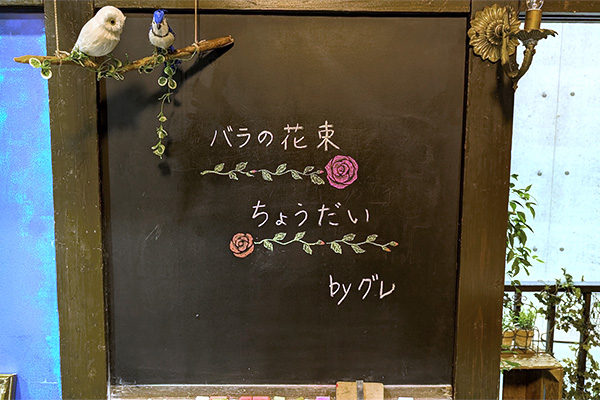 バラの花束
ちょうだい
byグレ